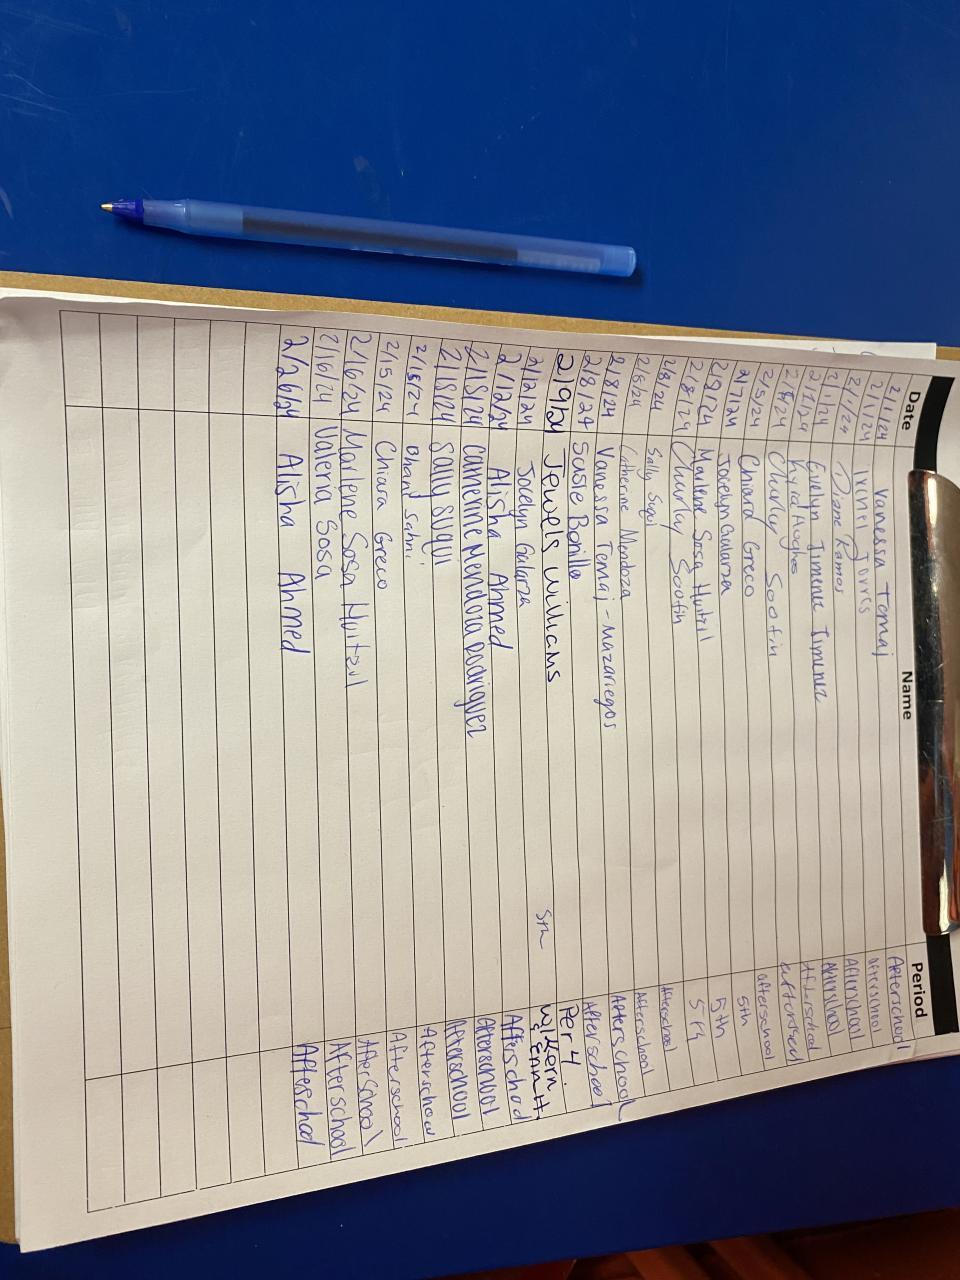 Date Name Period
2/1/24 Vanessa Tomaj Afterschool
2/1/24 Irvnei Torres Afterschool
2/1/24 Diane Ramos Afterschool
2/1/24 Evelyn Jimenez Jimenez Afterschool
2/1/24 Kyra Hughes Afterschool
Charly Sootin afterschool
2/5/24 Chiara Greco afterschool
2/7/24 Jocelyn Galarza 5th
2/8/24 Marlene Sosa Huitzil 5th
2/8/24 Charly Sootin 5th
2/8/24 Sally Suqui Afterschool
2/8/24 Catherine Mendoza Afterschool
2/8/24 Vanessa Tomaj-Mazariegos Afterschool
2/8/24 Susie Bonilla Afterschool
2/9/24 Jewels Williams Per 4.
2/12/24 Jocelyn Galarza 5th
2/12/24 Alisha Ahmed Afterschool
2/15/24 Catherine Mendoza Rodriguez Afterschool
2/15/24 Sally Suqui Afterschool
2/15/24 Sahni Afterschool
2/15/24 Chiara Greco Afterschool
2/16/24 Marlene Sosa Huitzil Afterschool
2/16/24 Valeria Sosa Afterschool
2/26/24 Alisha Ahmed Afterschool